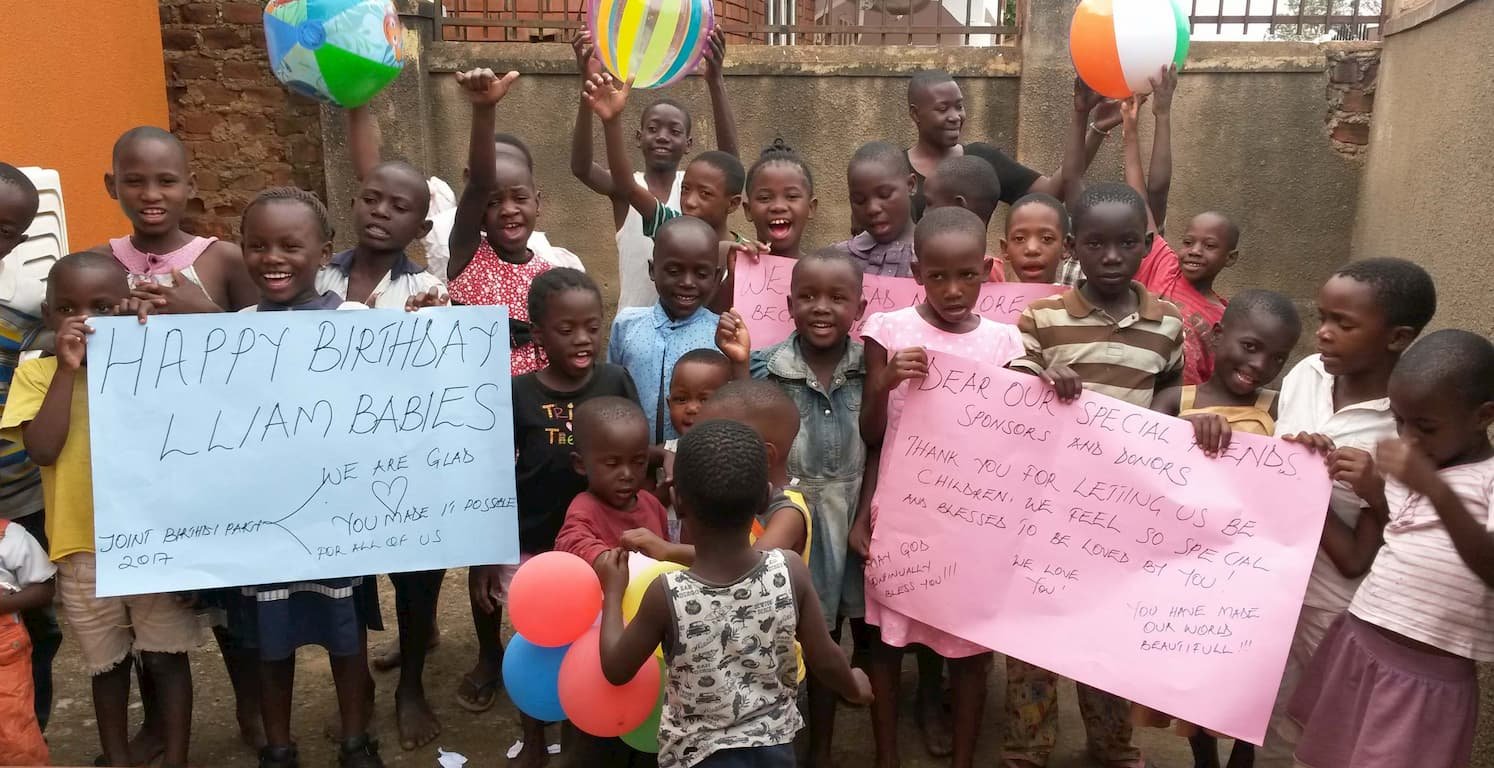 HAPPY BIRTHDAY
LLIAM BABIES
WE ARE GLAD
JOINT BIRTHDY PARTY
2017
YOU MADE IT POSSIBLE
FOR ALL OF US
WE
MORE
BEC
DEAR OUR SPECIAL FRIENDS,
SPONSORS AND DONORS
THANK YOU FOR LETTING US BE
CHILDREN. WE FEEL SO SPECIAL
AND BLESSED TO BE LOVED BY YOU!
MAY GOD
CONTINUALLY
BLESS YOU!!!
WE LOVE
YOU!
YOU HAVE MADE
OUR WORLD
BEAUTIFULL!!!